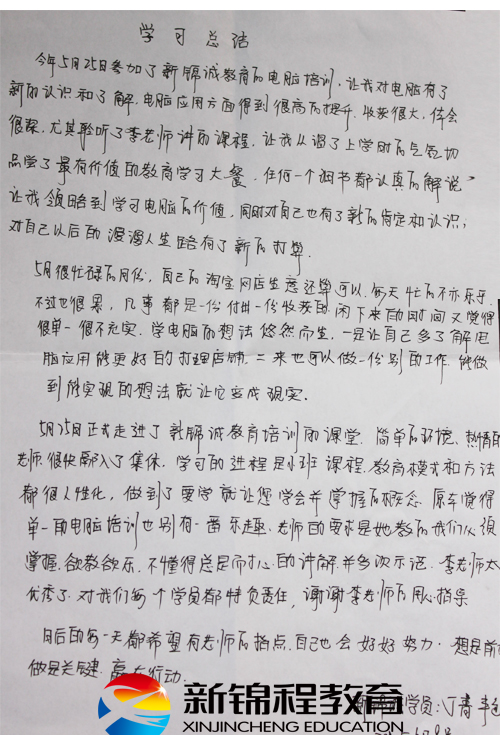 学习总结
今年5月25日参加了新锦诚教育的电脑培训，让我对电脑有了
新的认识和了解，电脑应用方面得到很高的提升，收获很大，体会
很深，尤其聆听了李老师讲的课程，让我从温了上学时的气氛，
品尝了最有价值的教育学习大餐，任何一个细节都认真的解说，
让我领略到学习电脑的价值，同时对自己也有了新的肯定和认识；
对自己以后的漫漫人生路有了新的打算。
5月很忙碌的月份，自己的淘宝网店生意还算可以，每天忙的不亦乐乎，
不过也很累，凡事都是一份付出一份收获的，闲下来的时间又觉得
很单一很不充实，学电脑的想法悠然而生，一是让自己多了解电
脑应用能更好的打理店铺，二来也可以做一份别的工作，能做
到能实现的想法就让它变成现实。
5月25日正式走进了新锦诚教育培训的课堂，简单的环境、热情的
老师，很快融入了集体，学习的进程是小班课程，教育模式和方法
都很人性化，做到了要学就让您学会并掌握的概念，原本觉得
单一的电脑培训也别有一番乐趣，老师的要求是她教的我们必须
掌握，欲教欲乐，不懂得总是耐心的讲解并多次示范，李老师太
优秀了，对我们每个学员都特负责任，谢谢李老师的用心指导
日后的每一天都希望有老师的指点，自己也会好好努力，想是前
做是关键，赢在行动。
学员：丁青
新锦程教育
XINJINCHENG EDUCATION